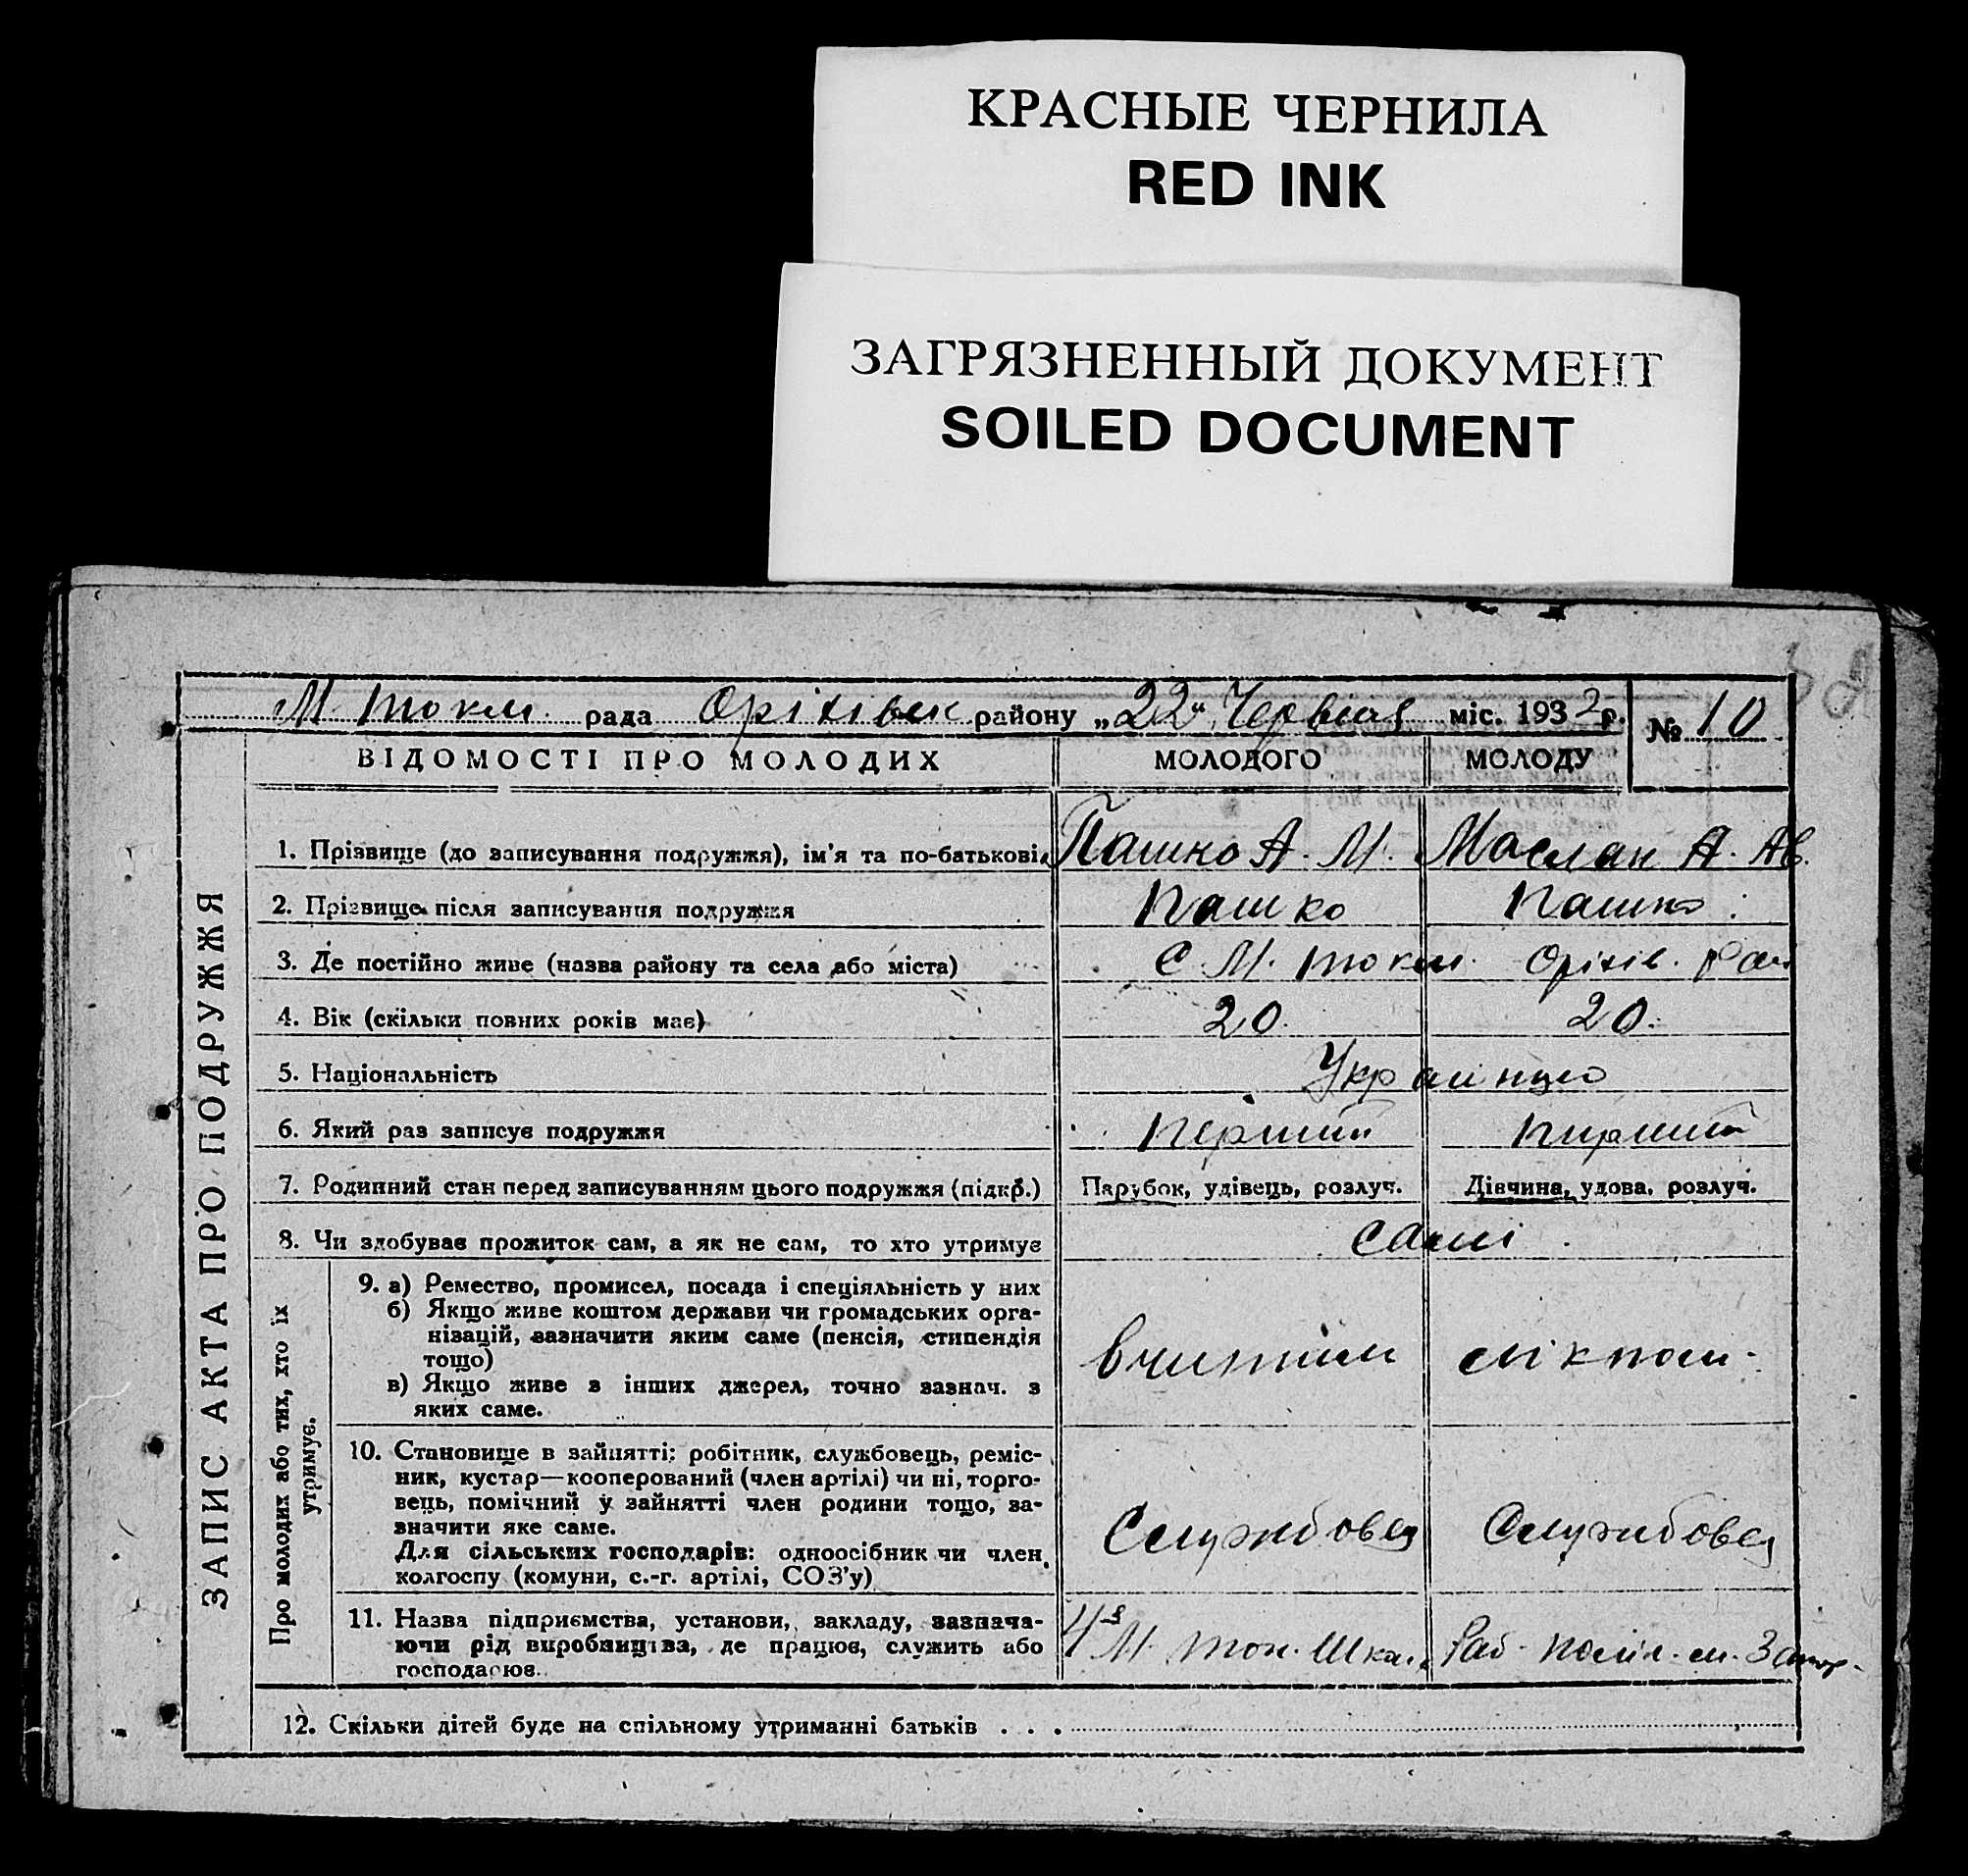 КРАСНЫЕ ЧЕРНИЛА
RED INK
ЗАГРЯЗНЕННЫЙ ДОКУМЕНТ
SOILED DOCUMENT
М. Токм. рада Оріхівськ району „22“ Червня міс. 1932 р. № 10
ЗАПИС АКТА ПРО ПОДРУЖЖЯ
ВІДОМОСТІ ПРО МОЛОДИХ МОЛОДОГО МОЛОДУ
1. Прізвище (до записування подружжя), ім'я та по-батькові. Пашко А. М. Маслак А. Ав.
2. Прізвище після записування подружжя Пашко Пашко
3. Де постійно живе (назва району та села або міста) С М. Токм. Оріхів. Рай
4. Вік (скільки повних років має) 20. 20.
5. Національність Українцю
6. Який раз записує подружжя Перший Пирший
7. Родинний стан перед записуванням цього подружжя (підкр.) Парубок, удівець, розлуч. Дівчина, удова, розлуч.
8. Чи здобував прожиток сам, а як не сам, то хто утримує самі
Про молодих або тих, хто їх утримує.
9. а) Ремество, промисел, посада і спеціяльність у них
б) Якщо живе коштом держави чи громадських орга-
нізацій, зазначити яким саме (пенсія, стипендія
тощо)
в) Якщо живе з інших джерел, точно зазнач. з
яких саме.
вчитіль лікпом.
10. Становище в зайнятті: робітник, службовець, реміс-
ник, кустар—кооперований (член артілі) чи ні, торго-
вець, помічний у зайнятті член родини тощо, за-
значити яке саме.
Для сільських господарів: одноосібник чи член
колгоспу (комуни, с.-г. артілі, СОЗ'у)
Службовец Службовец
11. Назва підприємства, установи, закладу, зазнача-
ючи рід виробництва, де працює, служить або
господарює.
М. Ток. Шко. Раб. полік. м. Запор.
12. Скільки дітей буде на спільному утриманні батьків . . .